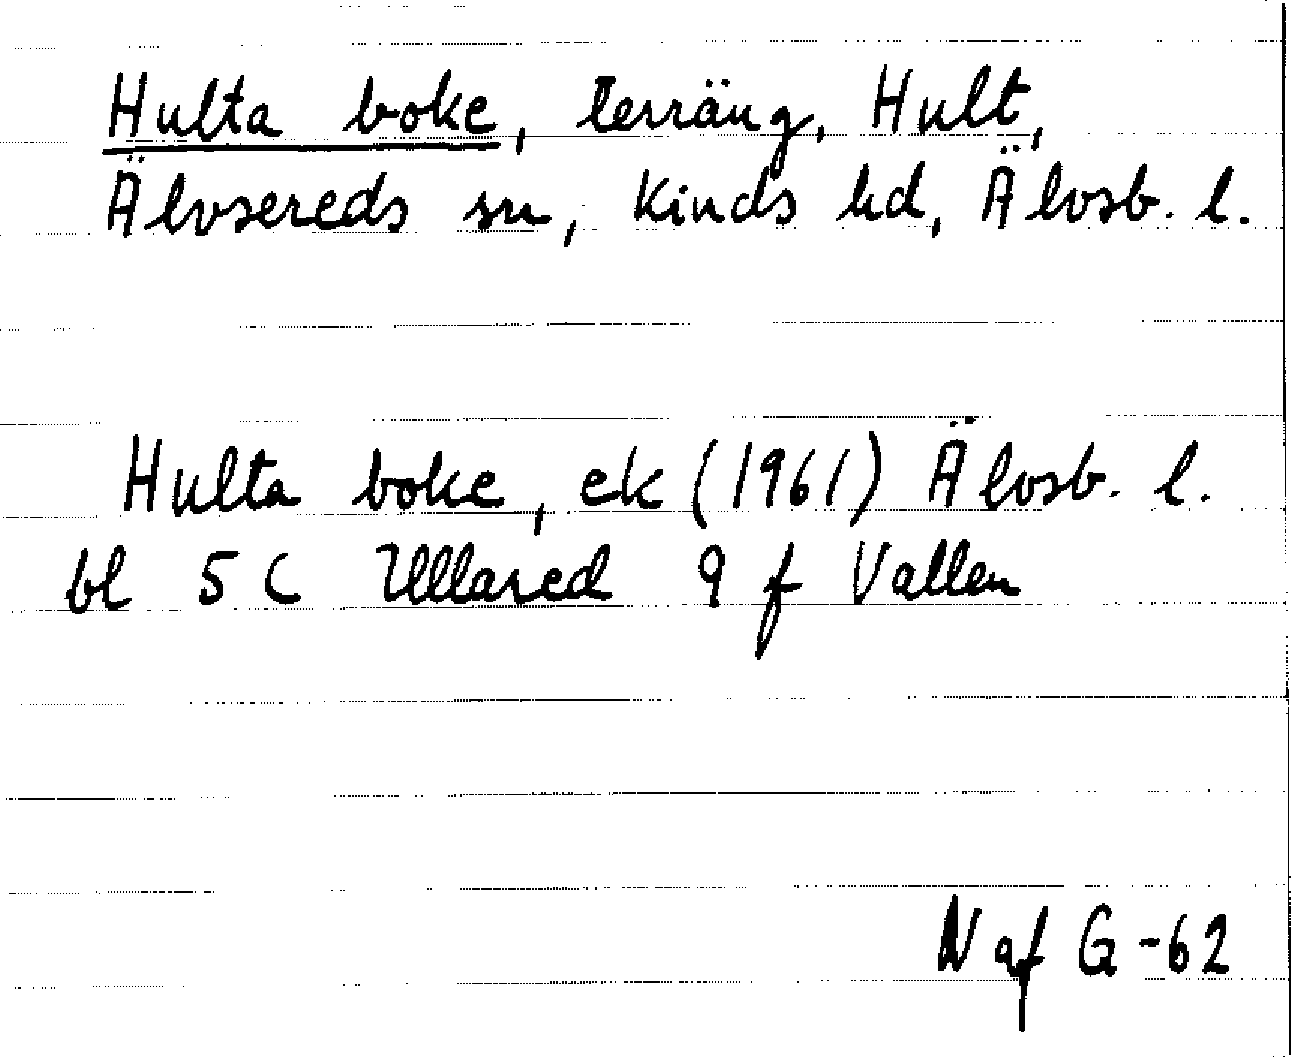 Hulta boke, terräng, Hult,
Älvsereds sn, Kinds hd, Älvsb. l.
Hulta boke, ek (1961) Älvsb. l.
bl 5 C Ullared 9 f Vallen
N af G-62